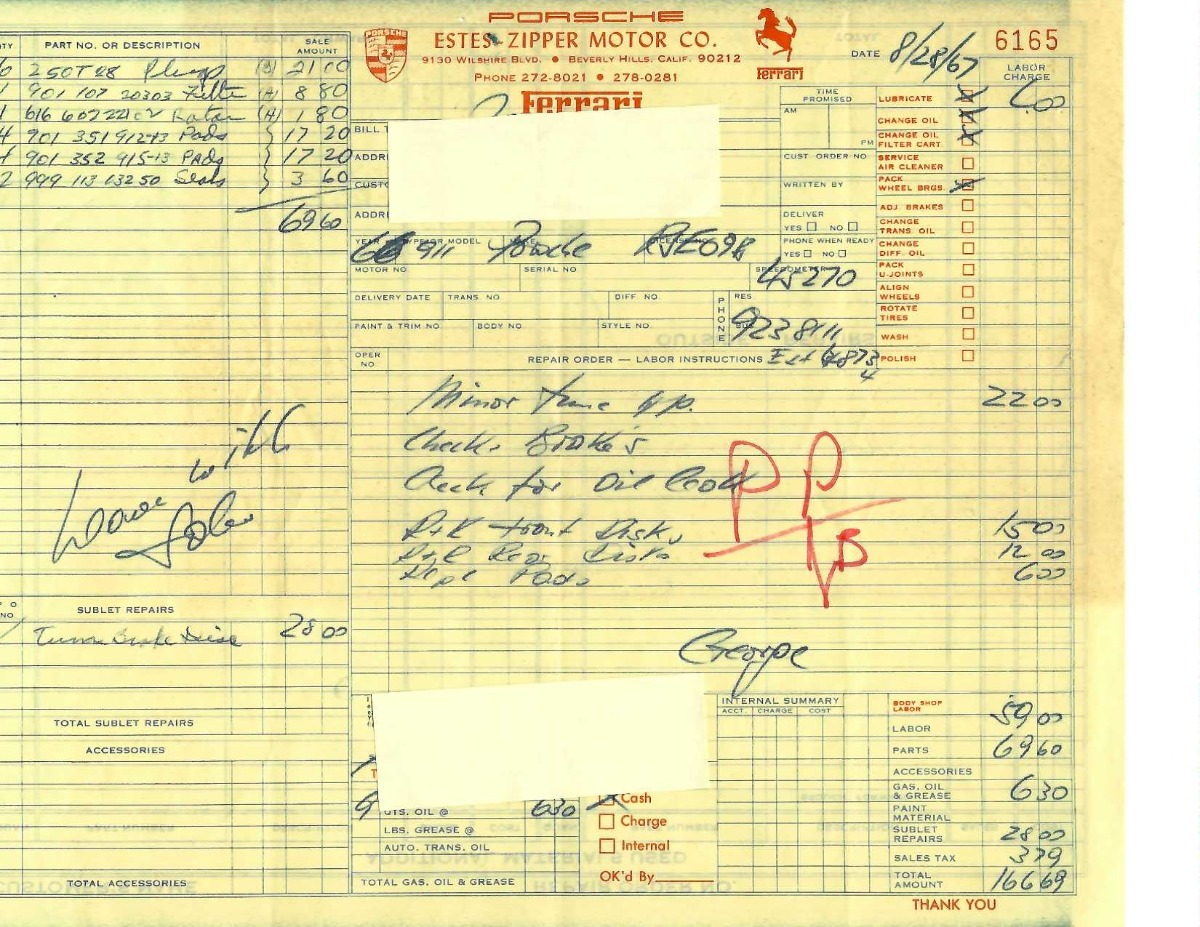 PORSCHE
ESTES-ZIPPER MOTOR CO.
9130 WILSHIRE BLVD. • BEVERLY HILLS, CALIF. 90212
PHONE 272-8021 • 278-0281
PORSCHE
Ferrari
Ferrari
DATE 8/28/67 6165
PART NO. OR DESCRIPTION SALE AMOUNT
250T28 Plugs 21 00
901 107 20303 Filter (A) 8 80
(A) 1 80
901 351 912-13 Pads 17 20
901 352 915-13 Pads 17 20
2 999 113 132 50 Seals 3 60
69 60
Leave with
SUBLET REPAIRS
Turn Brake Disc 28 00
TOTAL SUBLET REPAIRS
ACCESSORIES
TOTAL ACCESSORIES
BILL T
ADDR
CUST
ADDR
TIME PROMISED
AM
PM
CUST. ORDER NO
WRITTEN BY
DELIVER
YES NO
PHONE WHEN READY
YES NO
LABOR CHARGE
LUBRICATE 6.00
CHANGE OIL
CHANGE OIL FILTER CART.
SERVICE AIR CLEANER
PACK WHEEL BRGS.
ADJ. BRAKES
CHANGE TRANS. OIL
CHANGE DIFF. OIL
PACK U-JOINTS
ALIGN WHEELS
ROTATE TIRES
WASH
POLISH
YEAR TYPE OR MODEL MAKE LICENSE NO.
66 911 Porsche RJE098
MOTOR NO. SERIAL NO. SPEEDOMETER
45270
DELIVERY DATE TRANS. NO. DIFF. NO.
PAINT & TRIM NO. BODY NO STYLE NO.
PHONE
RES
BUS
923 8111
OPER NO
REPAIR ORDER — LABOR INSTRUCTIONS
Minor tune up. 22 00
Check Brake's
Check for oil leak
R+R front Disks 15 00
R+R Rear Disks 12 00
Repl Pads 6 00
George
INTERNAL SUMMARY
ACCT. CHARGE COST
9 QTS. OIL @ 6 30
LBS. GREASE @
AUTO. TRANS. OIL
TOTAL GAS, OIL & GREASE
Cash
Charge
Internal
OK'd By
BODY SHOP LABOR
LABOR 59 00
PARTS 69 60
ACCESSORIES
GAS, OIL & GREASE 6 30
PAINT MATERIAL
SUBLET REPAIRS 28 00
SALES TAX 3 79
TOTAL AMOUNT 166 69
THANK YOU